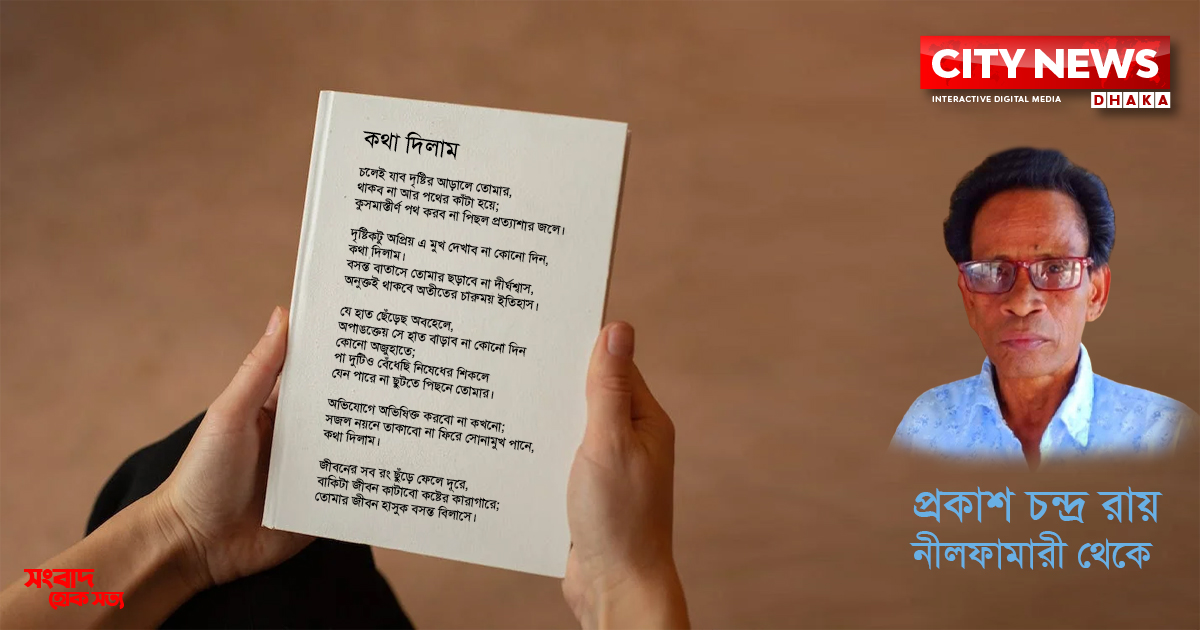 কথা দিলাম
চলেই যাব দৃষ্টির আড়ালে তোমার,
থাকব না আর পথের কাঁটা হয়ে;
কুসমাস্তীর্ণ পথ করব না পিছল প্রত্যাশার জলে।
দৃষ্টিকটু অপ্রিয় এ মুখ দেখাব না কোনো দিন,
কথা দিলাম।
বসন্ত বাতাসে তোমার ছড়াবে না দীর্ঘশ্বাস,
অনুক্তই থাকবে অতীতের চারুময় ইতিহাস।
যে হাত ছেঁড়েছ অবহেলে,
অপাঙক্তেয় সে হাত বাড়াব না কোনো দিন
কোনো অজুহাতে;
পা দুটিও বেঁধেছি নিষেধের শিকলে
যেন পারে না ছুটতে পিছনে তোমার।
অভিযোগে অভিষিক্ত করবো না কখনো;
সজল নয়নে তাকাবো না ফিরে সোনামুখ পানে,
কথা দিলাম।
জীবনের সব রং ছুঁড়ে ফেলে দূরে,
বাকিটা জীবন কাটাবো কষ্টের কারাগারে;
তোমার জীবন হাসুক বসন্ত বিলাসে।
CITY NEWS
INTERACTIVE DIGITAL MEDIA
DHAKA
প্রকাশ চন্দ্র রায়
নীলফামারী থেকে
সংবাদ
হোক সত্য